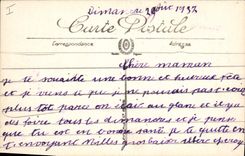 I
Dimanche 29 août 1937
Carte Postale
Correspondance
Adresse
Chère maman
je te souhaite une bonne et heureuse fête
et je viens te que je ne pouvais pas
plus tôt parce on était au glane et il y a
des foire tous les dimanches et je pense
que tu est en bonne santé je te quitte en
t'envoyant Milles gros baiser